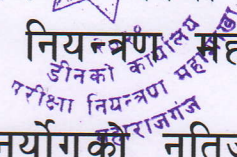 नियन्त्रण मह
डीनको कार्यालय
परीक्षा नियन्त्रण महाशाखा
महाराजगंज